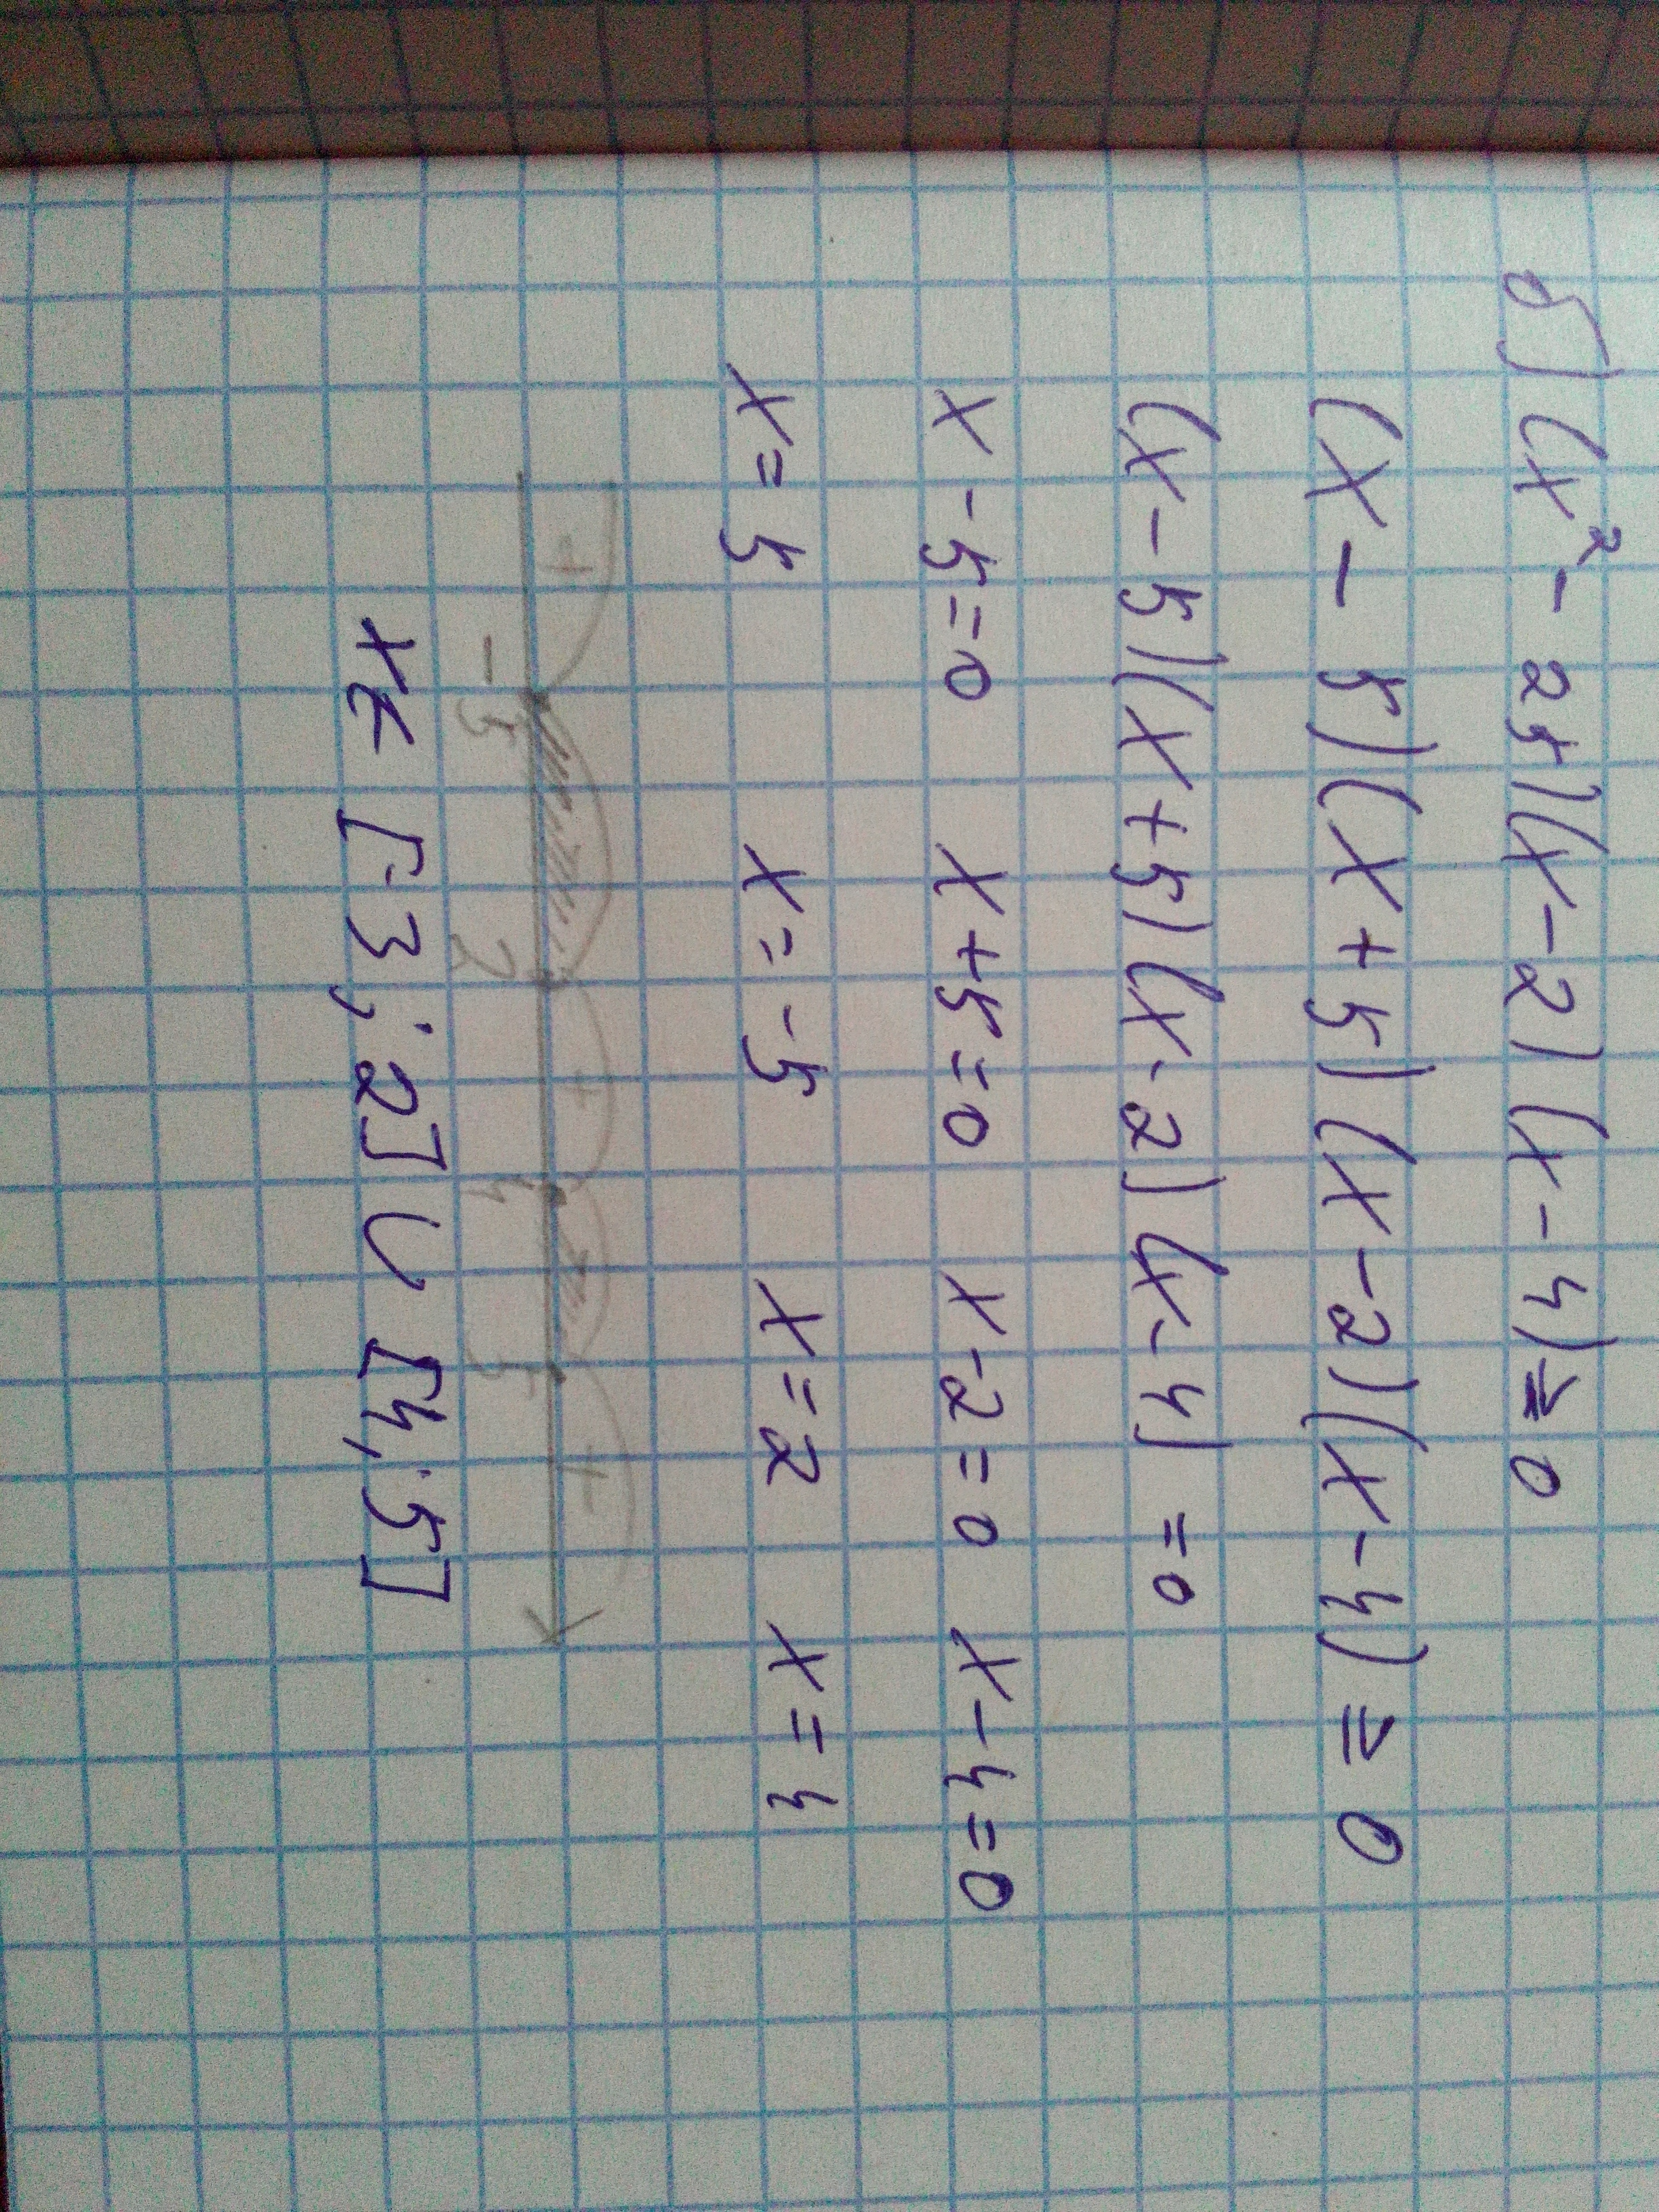 б) (x² - 25)(x - 2)(x - 4) ≥ 0
(x - 5)(x + 5)(x - 2)(x - 4) ≥ 0
(x - 5)(x + 5)(x - 2)(x - 4) = 0
x - 5 = 0 x + 5 = 0 x - 2 = 0 x - 4 = 0
x = 5 x = -5 x = 2 x = 4
+ + +
-5 2 4 5
x ∈ [-3; 2] ∪ [4; 5]